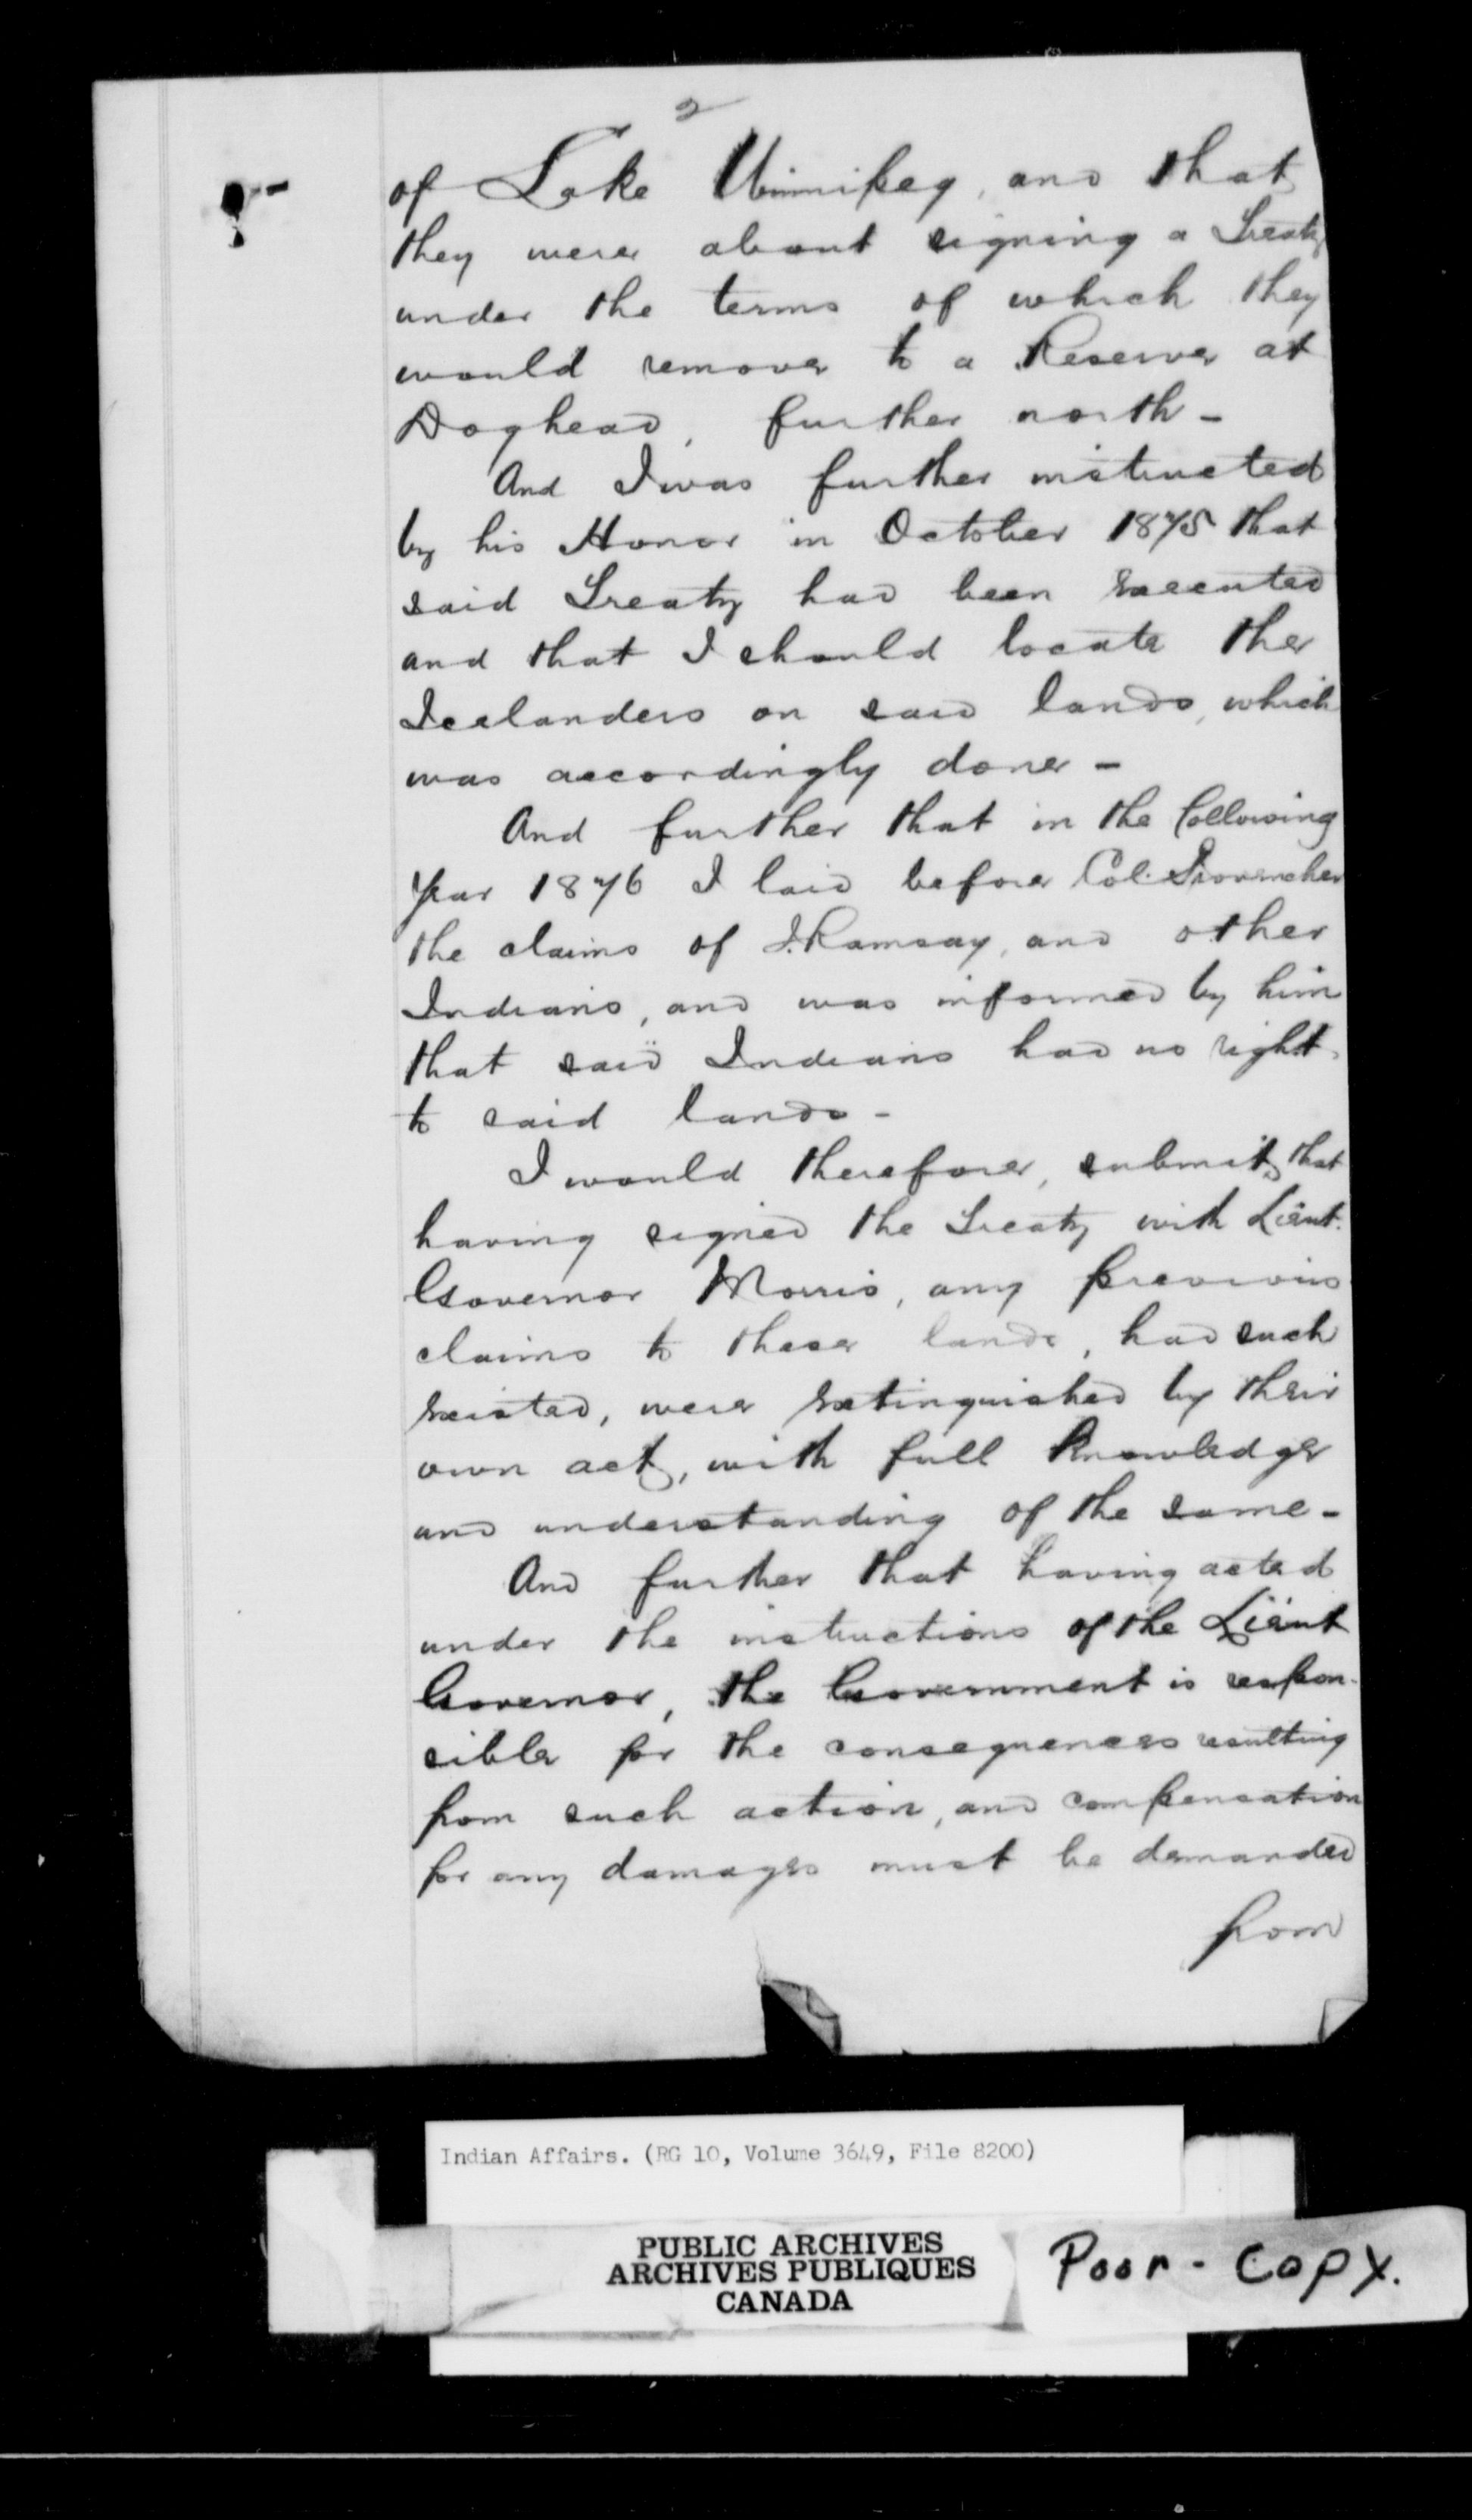 2
of Lake Winnipeg, and that
they were about signing a Treaty
under the terms of which they
would remove to a Reserve at
Doghead, further north -
And I was further instructed
by his Honor in October 1875 that
said Treaty had been executed
and that I should locate the
Icelanders on said lands, which
was accordingly done -
And further that in the following
Year 1876 I laid before Col. Provencher
the claims of J. Ramsay, and other
Indians, and was informed by him
that said Indians had no right
to said lands -
I would therefore, submit, that
having signed the Treaty with Lieut.
Governor Morris, any previous
claims to these lands, had such
existed, were extinguished by their
own act, with full Knowledge
and understanding of the same -
And further that having acted
under the instructions of the Lieut
Governor, the Government is respon-
sible for the consequences resulting
from such action, and compensation
for any damages must be demanded
from
Indian Affairs. (RG 10, Volume 3649, File 8200)
PUBLIC ARCHIVES
ARCHIVES PUBLIQUES
CANADA
Poor - Copy.